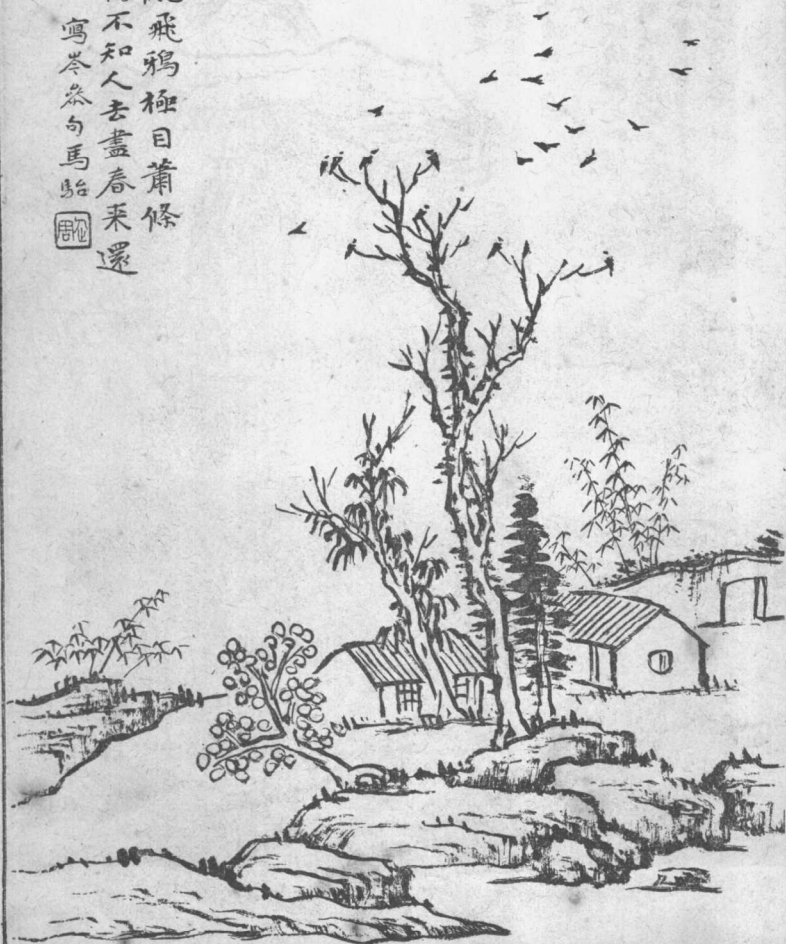 飛鴉極目蕭條
不知人去盡春来還
寫岑參句馬駘